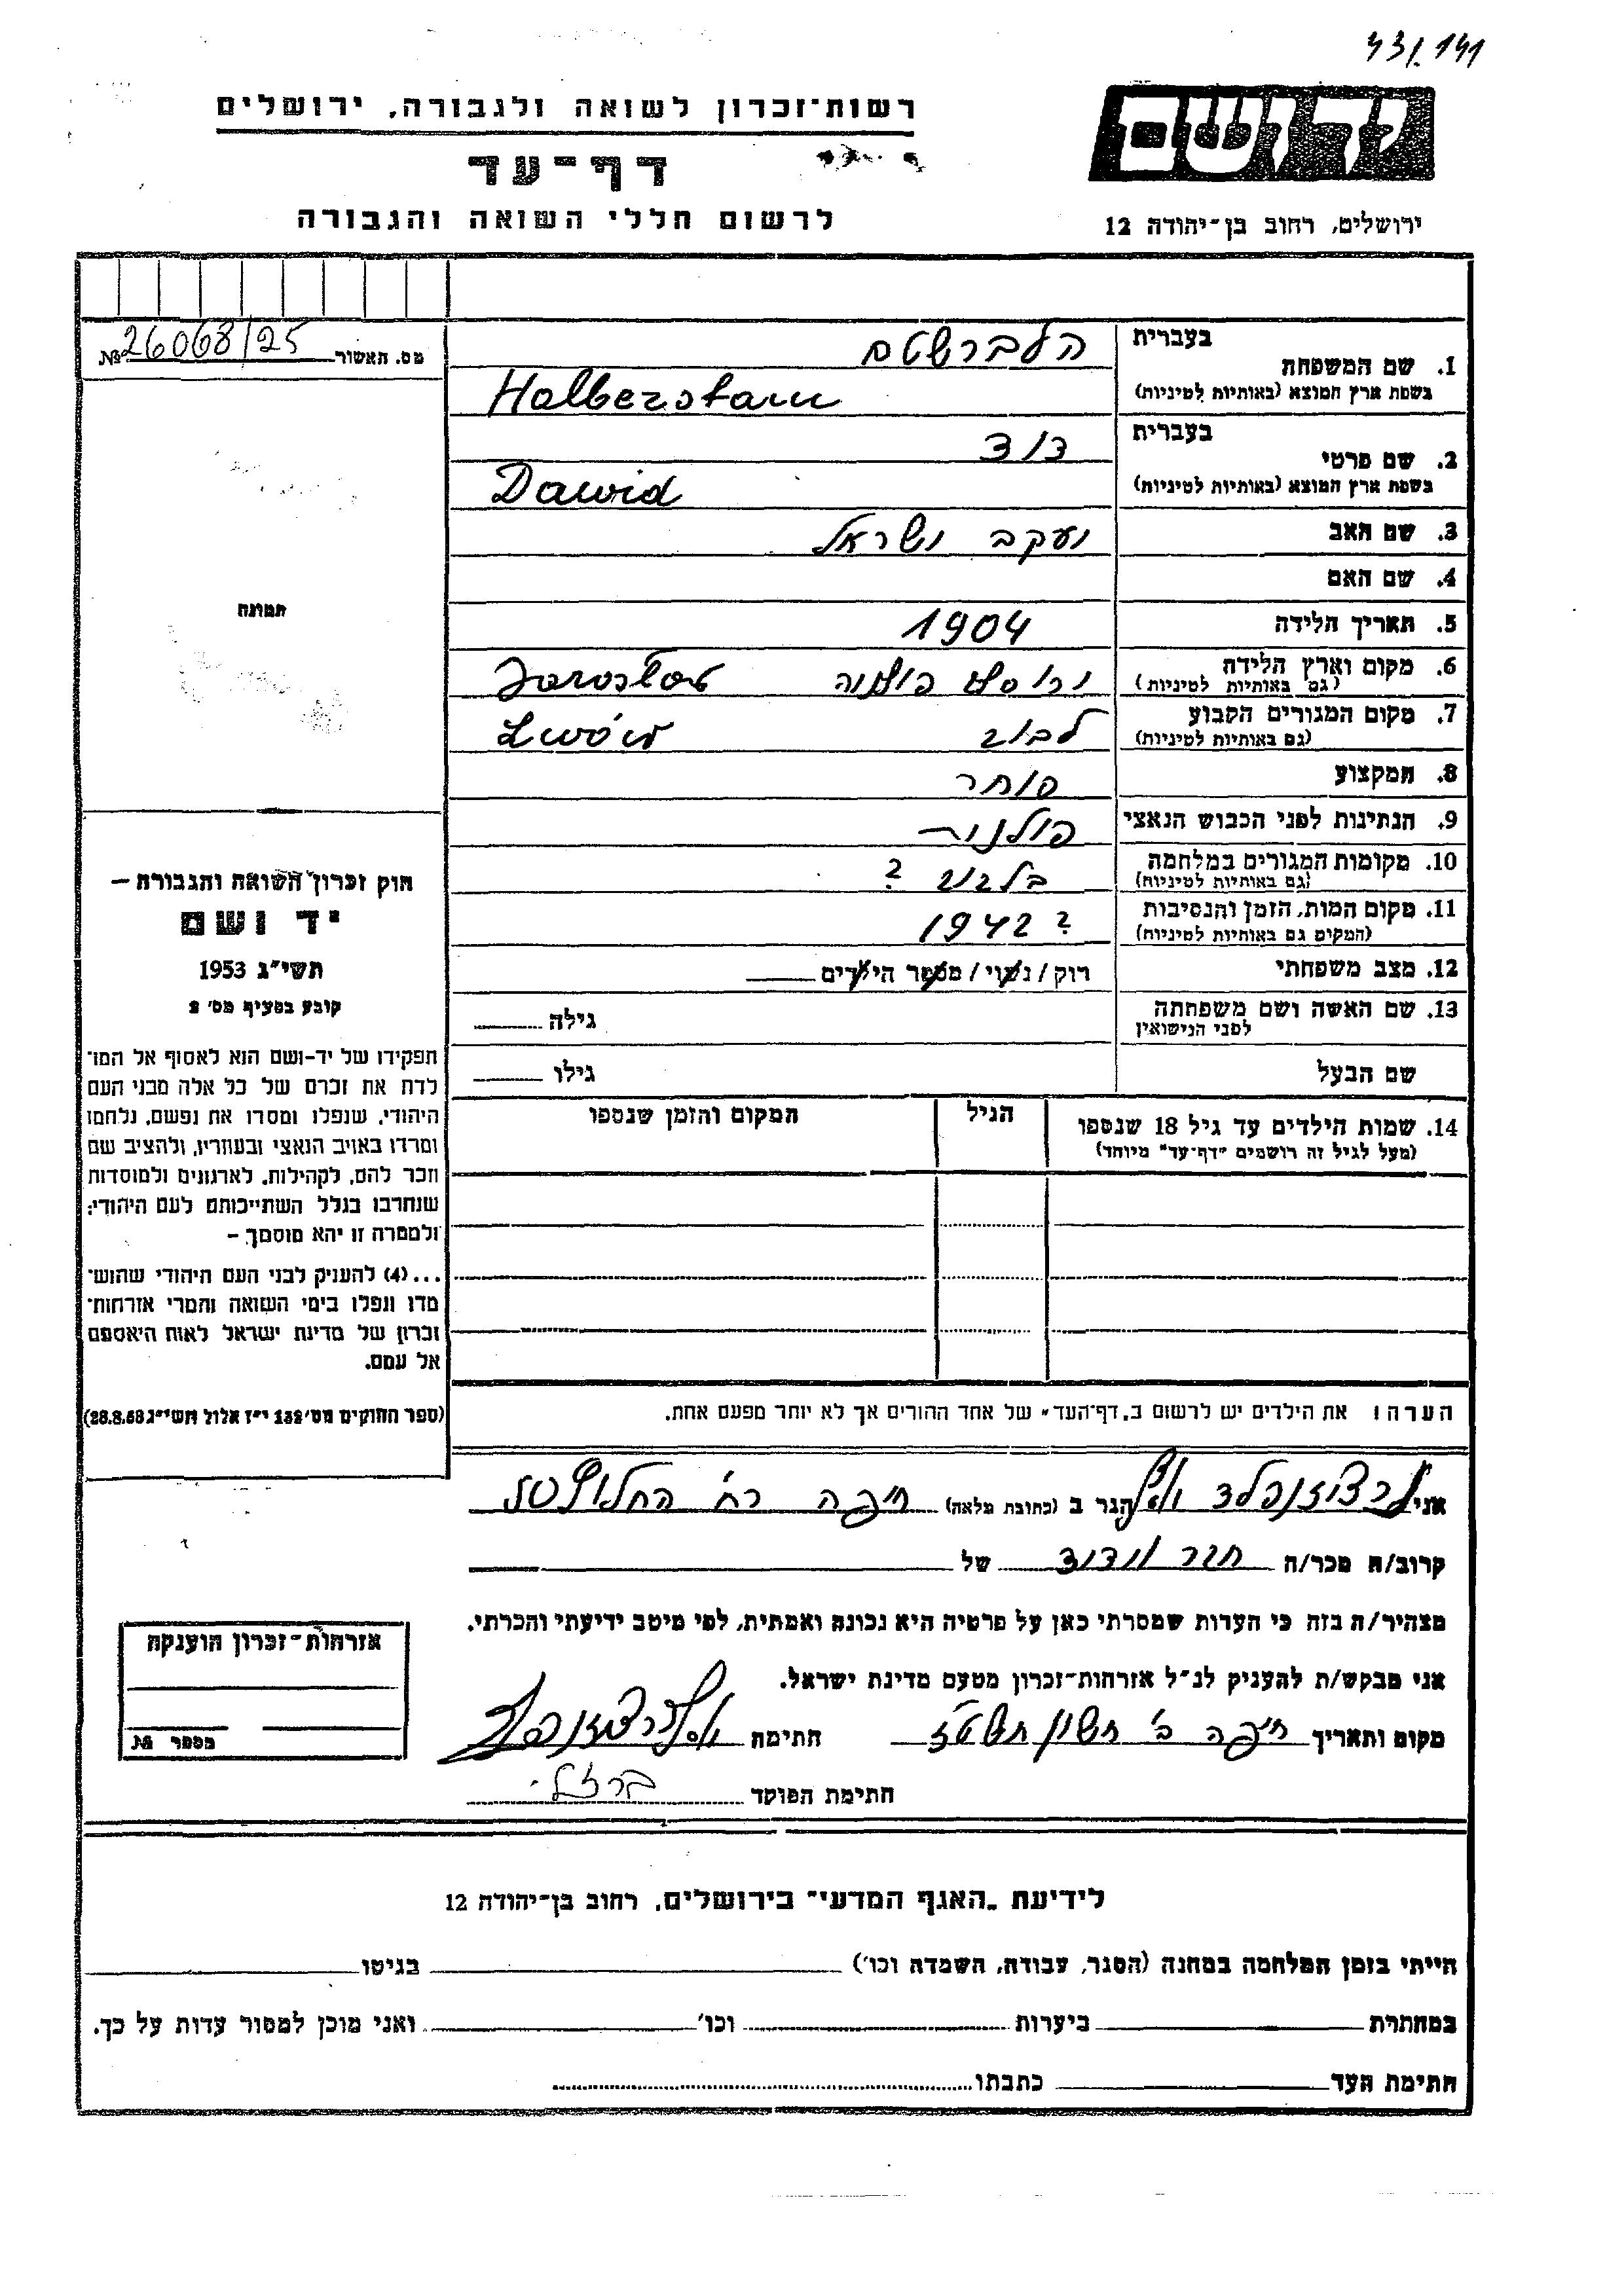 43/141
יד ושם
ירושלים, רחוב בן־יהודה 12
רשות־זכרון לשואה ולגבורה, ירושלים
דף־עד
לרשום חללי השואה והגבורה
מס. תאשור № 26068/25
תמונה
חוק זכרון השואה והגבורה –
יד ושם
תשי״ג 1953
קובע בסעיף מס׳ 2
תפקידו של יד-ושם הוא לאסוף אל המו־
לדת את זכרם של כל אלה מבני העם
היהודי, שנפלו ומסרו את נפשם, נלחמו
ומרדו באויב הנאצי ובעוזריו, ולהציב שם
וזכר להם, לקהילות, לארגונים ולמוסדות
שנחרבו בגלל השתייכותם לעם היהודי;
ולמטרה זו יהא מוסמך –
...(4) להעניק לבני העם היהודי שהוש־
מדו ונפלו בימי השואה והמרי אזרחות־
זכרון של מדינת ישראל לאות היאספם
אל עמם.
(ספר החוקים מס׳ 132 י״ז אלול תשי״ג 28.8.53)
1. שם המשפחה
בעברית הלברשטם
בשפת ארץ המוצא (באותיות לטיניות) Halberstam
2. שם פרטי
בעברית דוד
בשפת ארץ המוצא (באותיות לטיניות) Dawid
3. שם האב יעקב ישראל
4. שם האם
5. תאריך הלידה 1904
6. מקום וארץ הלידה
(גם באותיות לטיניות) פולניה Jarosław
7. מקום המגורים הקבוע
(גם באותיות לטיניות) לבוב Lwów
8. המקצוע סוחר
9. הנתינות לפני הכבוש הנאצי פולנית
10. מקומות המגורים במלחמה
(גם באותיות לטיניות) בלבוב ?
11. מקום המות, הזמן והנסיבות
(המקום גם באותיות לטיניות) ? 1942
12. מצב משפחתי רוק / נשוי / מספר הילדים
13. שם האשה ושם משפחתה
לפני הנישואין גילה
שם הבעל גילו
14. שמות הילדים עד גיל 18 שנספו הגיל המקום והזמן שנספו
(מעל לגיל זה רושמים "דף־עד" מיוחד)
הערה: את הילדים יש לרשום ב„דף־העד״ של אחד ההורים אך לא יותר מפעם אחת.
אני הגר ב (כתובת מלאה) חיפה רח׳
קרוב/ה מכר/ה חבר וידיד של
מצהיר/ה בזה כי העדות שמסרתי כאן על פרטיה היא נכונה ואמתית, לפי מיטב ידיעתי והכרתי.
אני מבקש/ת להעניק לנ״ל אזרחות־זכרון מטעם מדינת ישראל.
מקום ותאריך חיפה ב׳ חשון חתימה
חתימת הפוקד ברזלי
אזרחות־זכרון הוענקה
מספר №
לידיעת „האגף המדעי״ בירושלים, רחוב בן־יהודה 12
הייתי בזמן המלחמה במחנה (הסגר, עבודה, השמדה וכו׳) בגיטו
במחתרת ביערות וכו׳ ואני מוכן למסור עדות על כך.
חתימת העד כתבתו